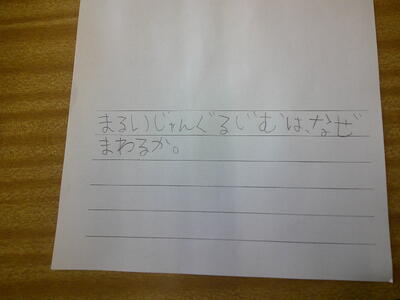 まるいじゃんぐるじむは、なぜ
まわるか。